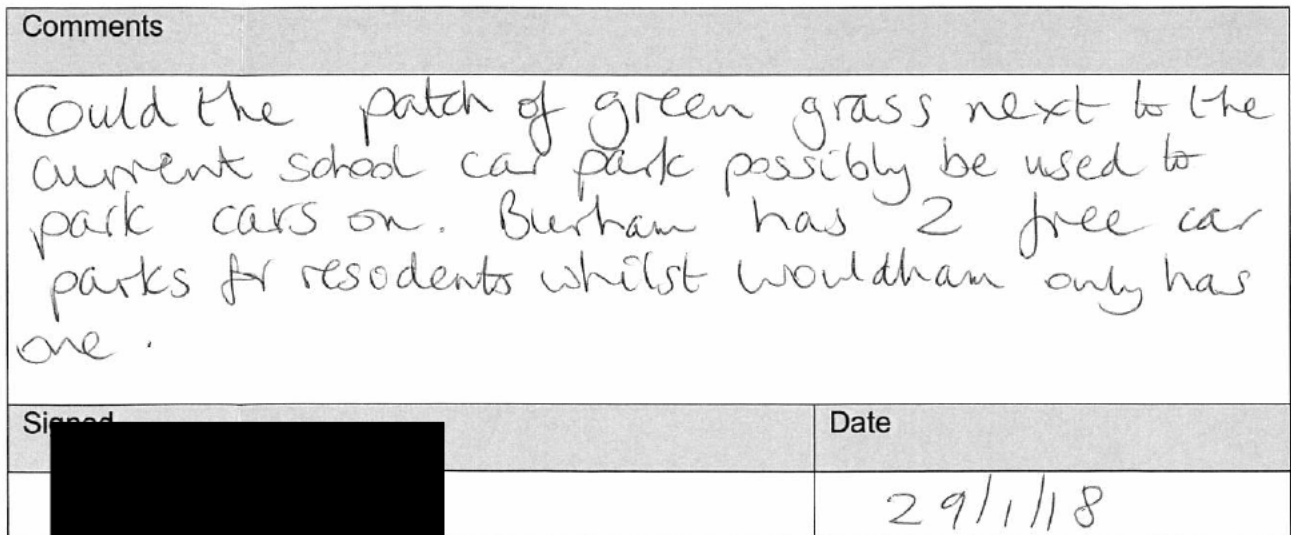 Comments
Could the patch of green grass next to the
current school car park possibly be used to
park cars on. Burham has 2 free car
parks for resodents whilst wouldham only has
one.
Signed
Date
29/1/18